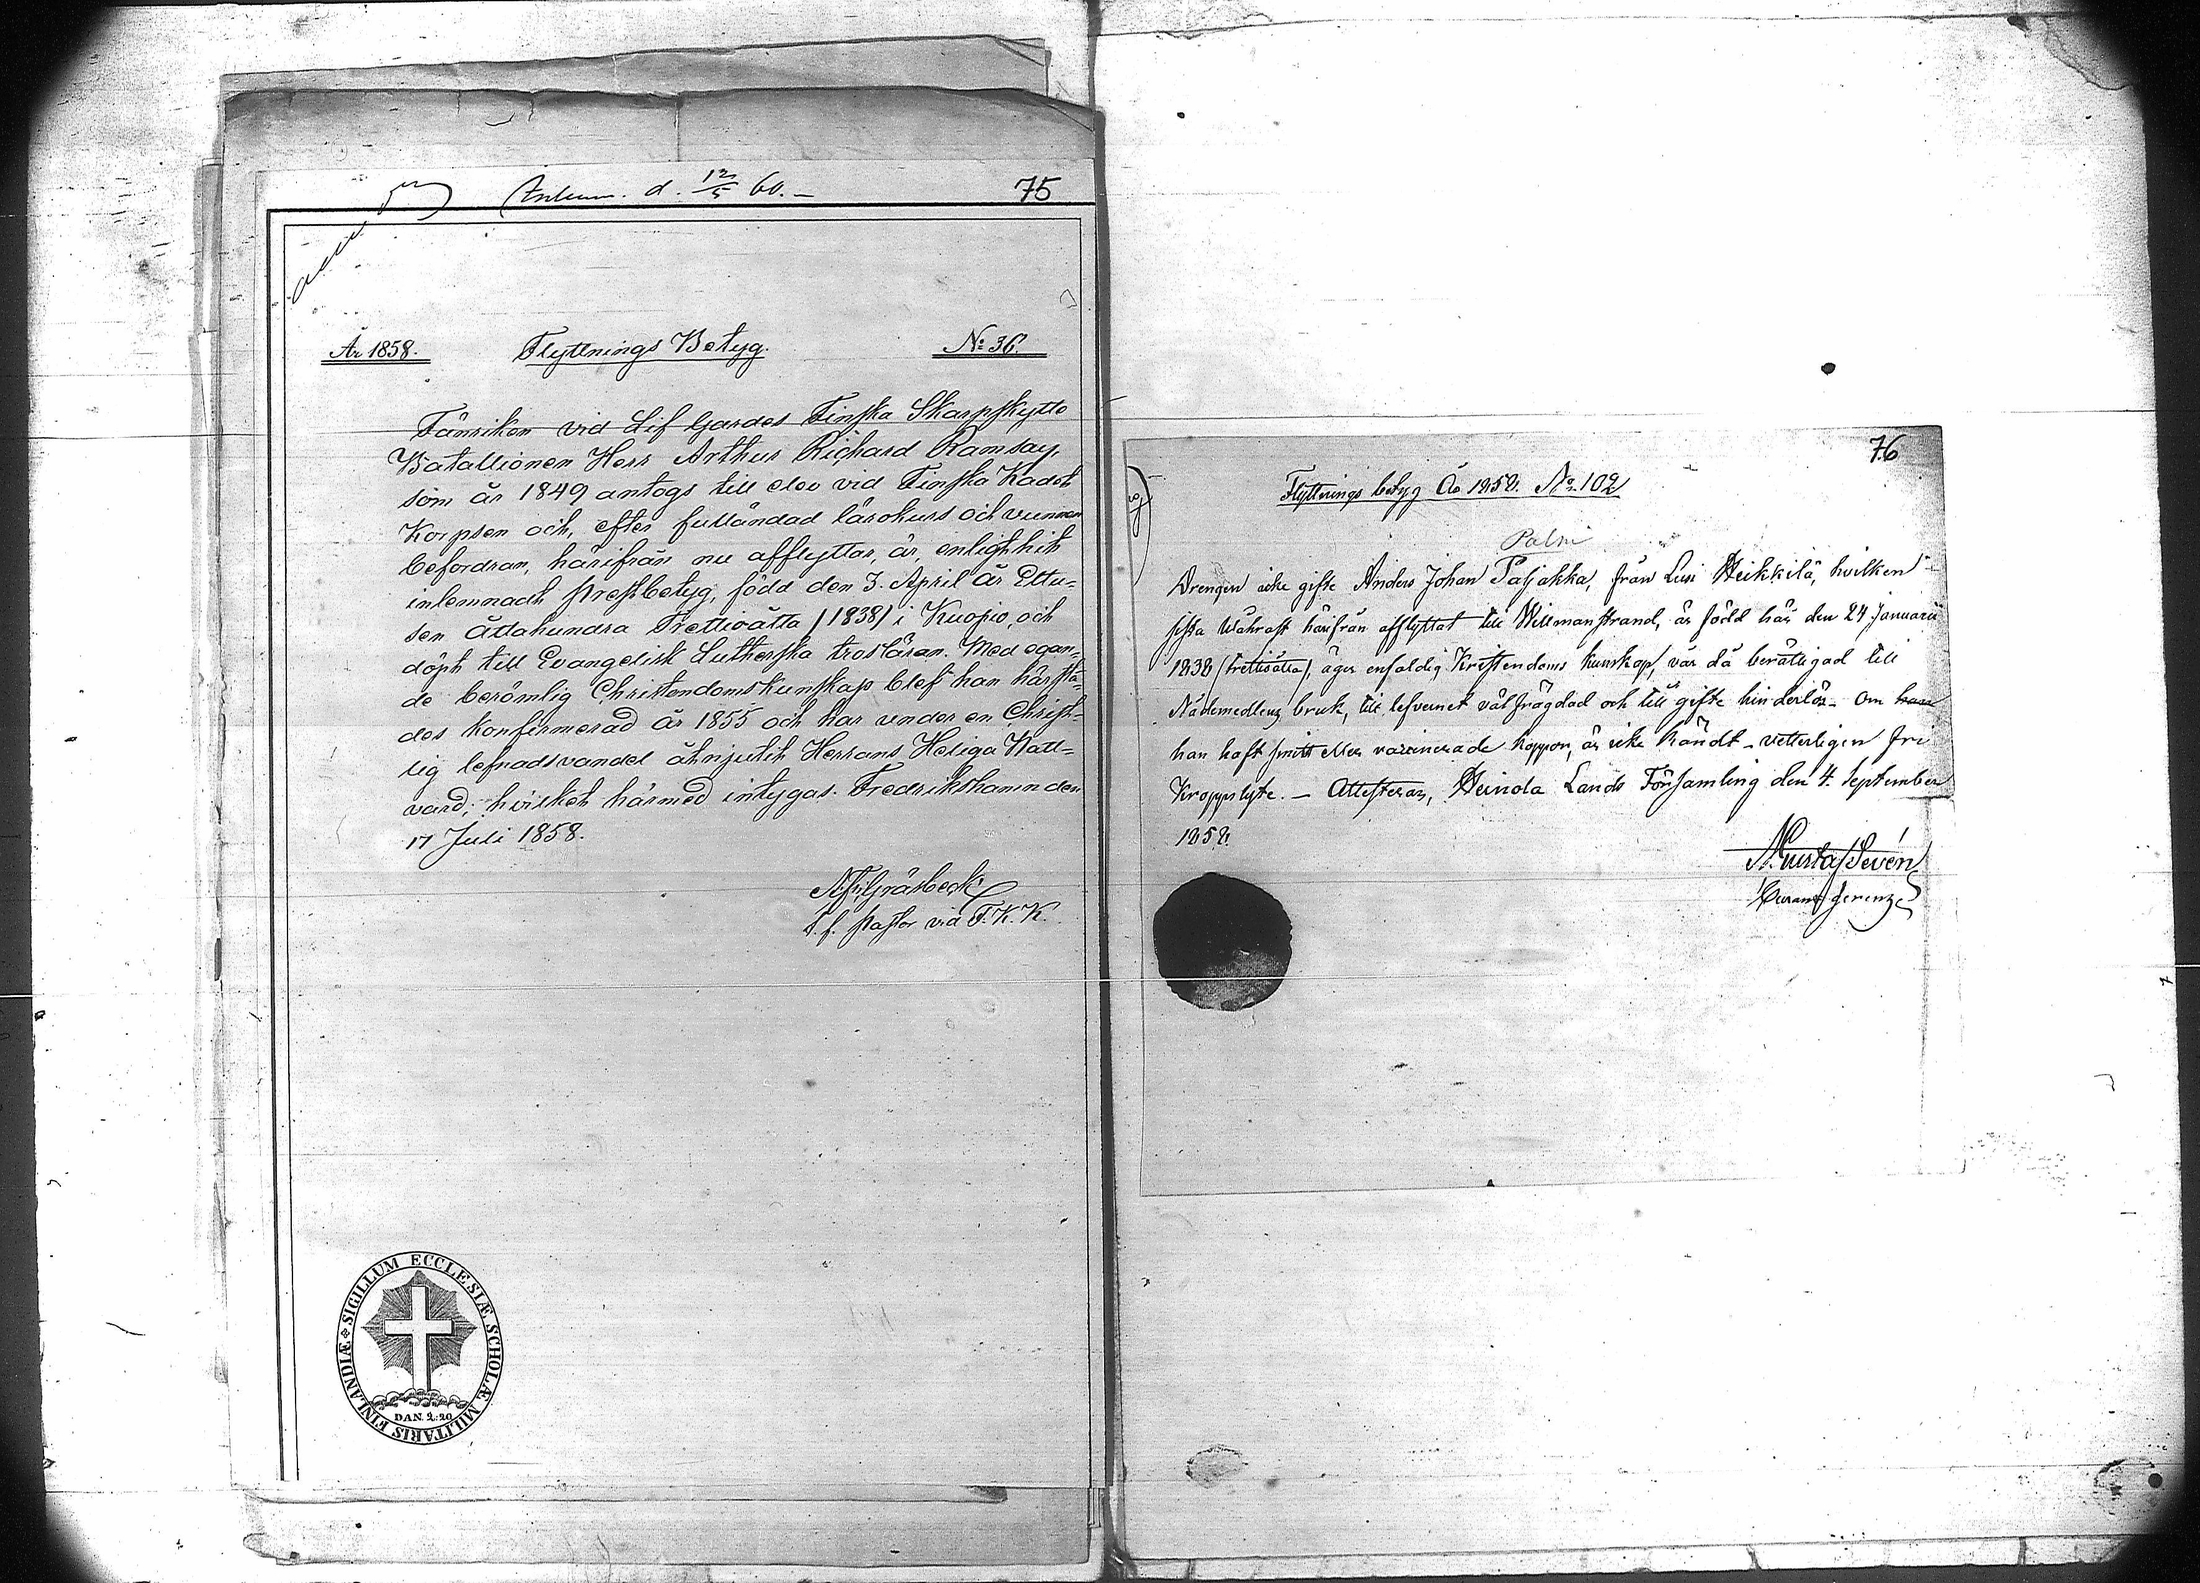 d. 12/5 60.-
75
År 1858.
Flyttnings Betyg.
No: 36.
Fänriken vid Lif Gardes Finska Skarpskytte
Batallionen Herr Arthur Richard Ramsay,
som år 1849 antogs till elev vid Finska Kadett
Korpsen och, efter fulländad lärokurs och vunnen
befordran, härifrån nu afflyttar, är, enligt hit
inlemnadt prestbetyg, född den 3. April år Ettu-
sen Åttahundra Trettioåtta /1838/ i Kuopio, och
döpt till Evangelisk Lutherska trosläran. Med egan-
de berömlig Christendomskunskap blef han härstä-
des konfirmerad år 1855 och har under en Christ-
lig lefnadsvandel åtnjutit Herrans Heliga Natt-
vard; hvilket härmed intygas. Fredrikshamn den
17 Juli 1858.
Gråsbeck
T. f. pastor vid F. K. K.
SIGILLUM ECCLESIÆ SCHOLÆ MILITARIS FINLANDIÆ
DAN. 2:20
76
Flyttnings betyg År 1858. No. 102
Palni
Drengen icke gifte Anders Johan Paljakka, från Lusi Heikkilä, hvilken
sista Wåhrast härifrån afflyttat till Willmanstrand, är född här den 24 Januarii
1838 (trettioåtta), äger enfaldig Kristendoms kunskap, var då berättigad till
Nådemedlens bruk, till lefvernet välfrägdad och till gifte hinderlös - Om han
han haft smitt eller vaccinerade koppor, är icke kändt - vetterligen fri
Kroppslyte. - Attesteras, Heinola Lands Församling den 4. September
1858.
Gustaf Sevón